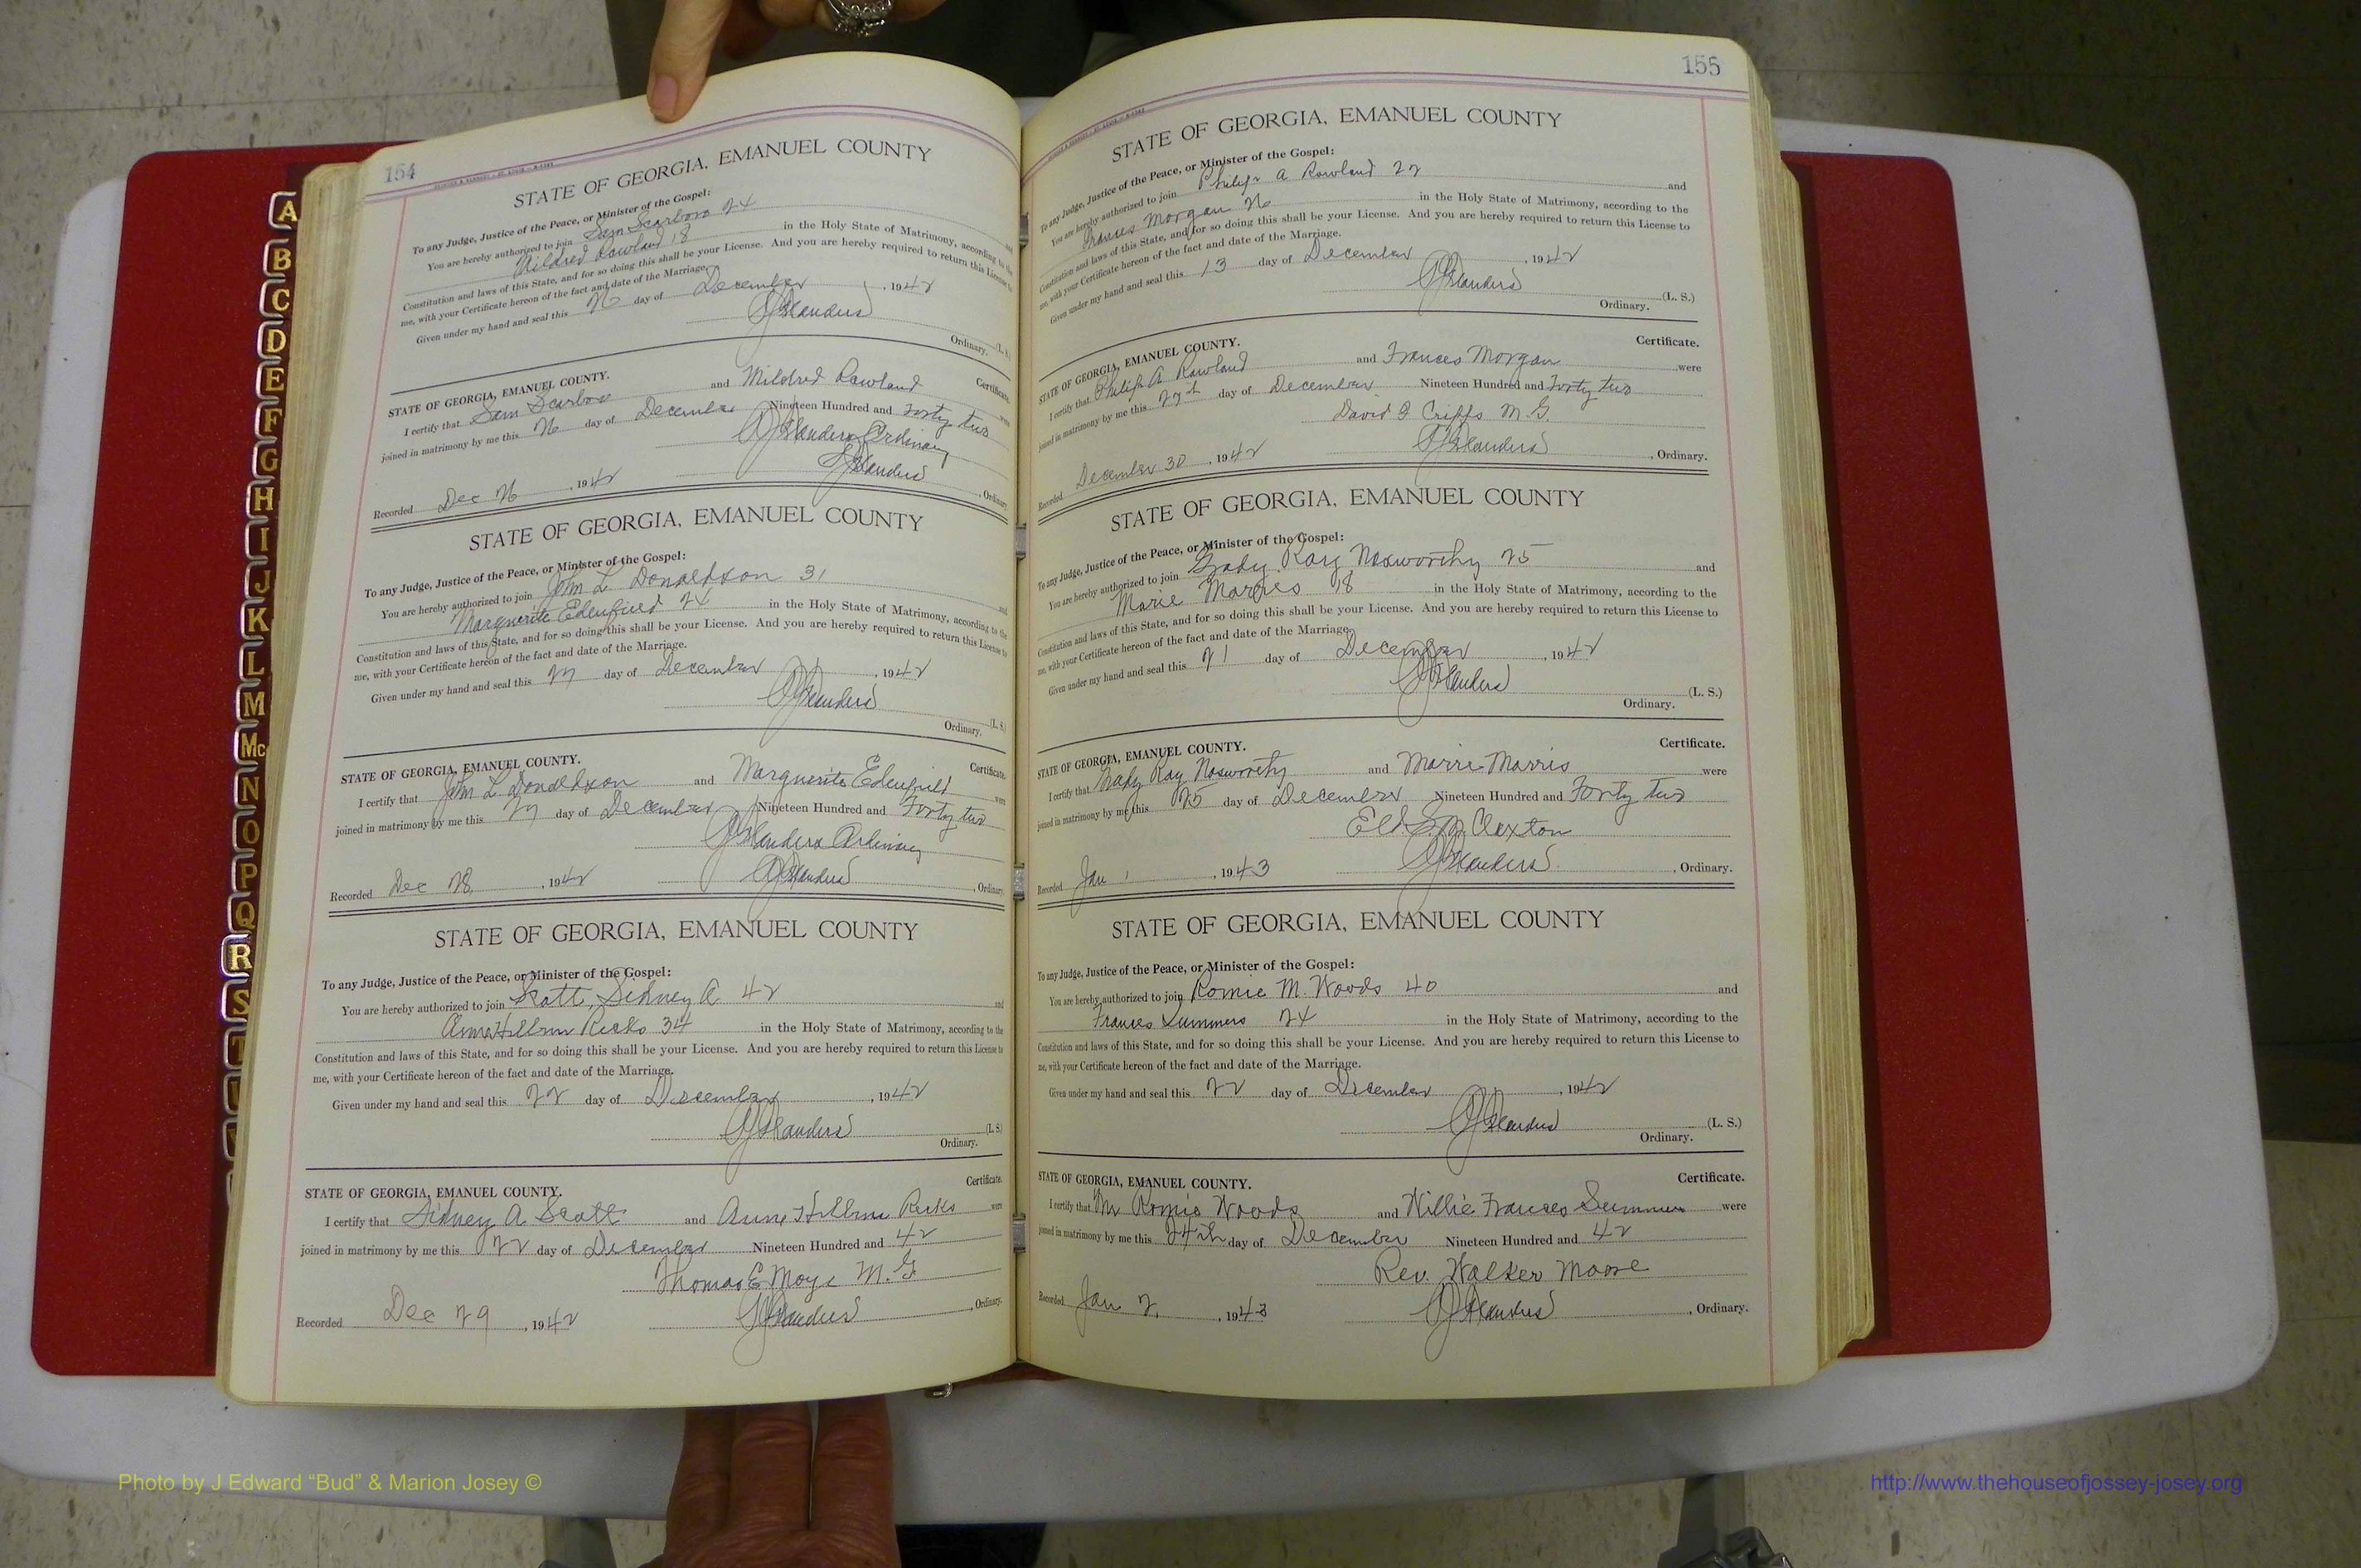 154
STATE OF GEORGIA, EMANUEL COUNTY
To any Judge, Justice of the Peace, or Minister of the Gospel:
You are hereby authorized to join Sam Scarboro 24 and
Mildred Rowland 18 in the Holy State of Matrimony, according to the
Constitution and laws of this State, and for so doing this shall be your License. And you are hereby required to return this License to
me, with your Certificate hereon of the fact and date of the Marriage.
Given under my hand and seal this 26 day of December, 1942
(L. S.)
Ordinary.
STATE OF GEORGIA, EMANUEL COUNTY. Certificate.
I certify that Sam Scarboro and Mildred Rowland were
joined in matrimony by me this 26 day of December Nineteen Hundred and Forty two
Ordinary
Recorded Dec 26, 1942, Ordinary.
STATE OF GEORGIA, EMANUEL COUNTY
To any Judge, Justice of the Peace, or Minister of the Gospel:
You are hereby authorized to join John L Donaldson 31 and
Marguerite Edenfield 24 in the Holy State of Matrimony, according to the
Constitution and laws of this State, and for so doing this shall be your License. And you are hereby required to return this License to
me, with your Certificate hereon of the fact and date of the Marriage.
Given under my hand and seal this 27 day of December, 1942
(L. S.)
Ordinary.
STATE OF GEORGIA, EMANUEL COUNTY. Certificate.
I certify that John L Donaldson and Marguerite Edenfield were
joined in matrimony by me this 27 day of December Nineteen Hundred and Forty two
Ordinary
Recorded Dec 28, 1942, Ordinary.
STATE OF GEORGIA, EMANUEL COUNTY
To any Judge, Justice of the Peace, or Minister of the Gospel:
You are hereby authorized to join Scott, Sidney A 42 and
Ricks 34 in the Holy State of Matrimony, according to the
Constitution and laws of this State, and for so doing this shall be your License. And you are hereby required to return this License to
me, with your Certificate hereon of the fact and date of the Marriage.
Given under my hand and seal this 22 day of December, 1942
(L. S.)
Ordinary.
STATE OF GEORGIA, EMANUEL COUNTY. Certificate.
I certify that Sidney A Scott and Ricks were
joined in matrimony by me this 22 day of December Nineteen Hundred and 42
Thomas E Moye M. G
Recorded Dec 29, 1942, Ordinary.
155
STATE OF GEORGIA, EMANUEL COUNTY
To any Judge, Justice of the Peace, or Minister of the Gospel:
You are hereby authorized to join Philip A Rowland 22 and
Frances Morgan 26 in the Holy State of Matrimony, according to the
Constitution and laws of this State, and for so doing this shall be your License. And you are hereby required to return this License to
me, with your Certificate hereon of the fact and date of the Marriage.
Given under my hand and seal this 13 day of December, 1942
(L. S.)
Ordinary.
STATE OF GEORGIA, EMANUEL COUNTY. Certificate.
I certify that Philip A Rowland and Frances Morgan were
joined in matrimony by me this 27th day of December Nineteen Hundred and Forty two
David M. G.
Recorded December 30, 1942, Ordinary.
STATE OF GEORGIA, EMANUEL COUNTY
To any Judge, Justice of the Peace, or Minister of the Gospel:
You are hereby authorized to join Grady Ray Nasworthy 25 and
Marie Morris 18 in the Holy State of Matrimony, according to the
Constitution and laws of this State, and for so doing this shall be your License. And you are hereby required to return this License to
me, with your Certificate hereon of the fact and date of the Marriage.
Given under my hand and seal this 21 day of December, 1942
(L. S.)
Ordinary.
STATE OF GEORGIA, EMANUEL COUNTY. Certificate.
I certify that Grady Ray Nasworthy and Marie Morris were
joined in matrimony by me this 25 day of December Nineteen Hundred and Forty two
Eld Claxton
Recorded Jan 1, 1943, Ordinary.
STATE OF GEORGIA, EMANUEL COUNTY
To any Judge, Justice of the Peace, or Minister of the Gospel:
You are hereby authorized to join Romie M. Woods 40 and
Frances Summers 24 in the Holy State of Matrimony, according to the
Constitution and laws of this State, and for so doing this shall be your License. And you are hereby required to return this License to
me, with your Certificate hereon of the fact and date of the Marriage.
Given under my hand and seal this 22 day of December, 1942
(L. S.)
Ordinary.
STATE OF GEORGIA, EMANUEL COUNTY. Certificate.
I certify that Mr Romie Woods and Willie Frances Summers were
joined in matrimony by me this 24th day of December Nineteen Hundred and 42
Rev. Walker Moore
Recorded Jan 2, 1943, Ordinary.
A
B
C
D
E
F
G
H
I
J
K
L
M
Mc
N
O
P
Q
R
S
T
Photo by J Edward “Bud” & Marion Josey ©
http://www.thehouseofjossey-josey.org